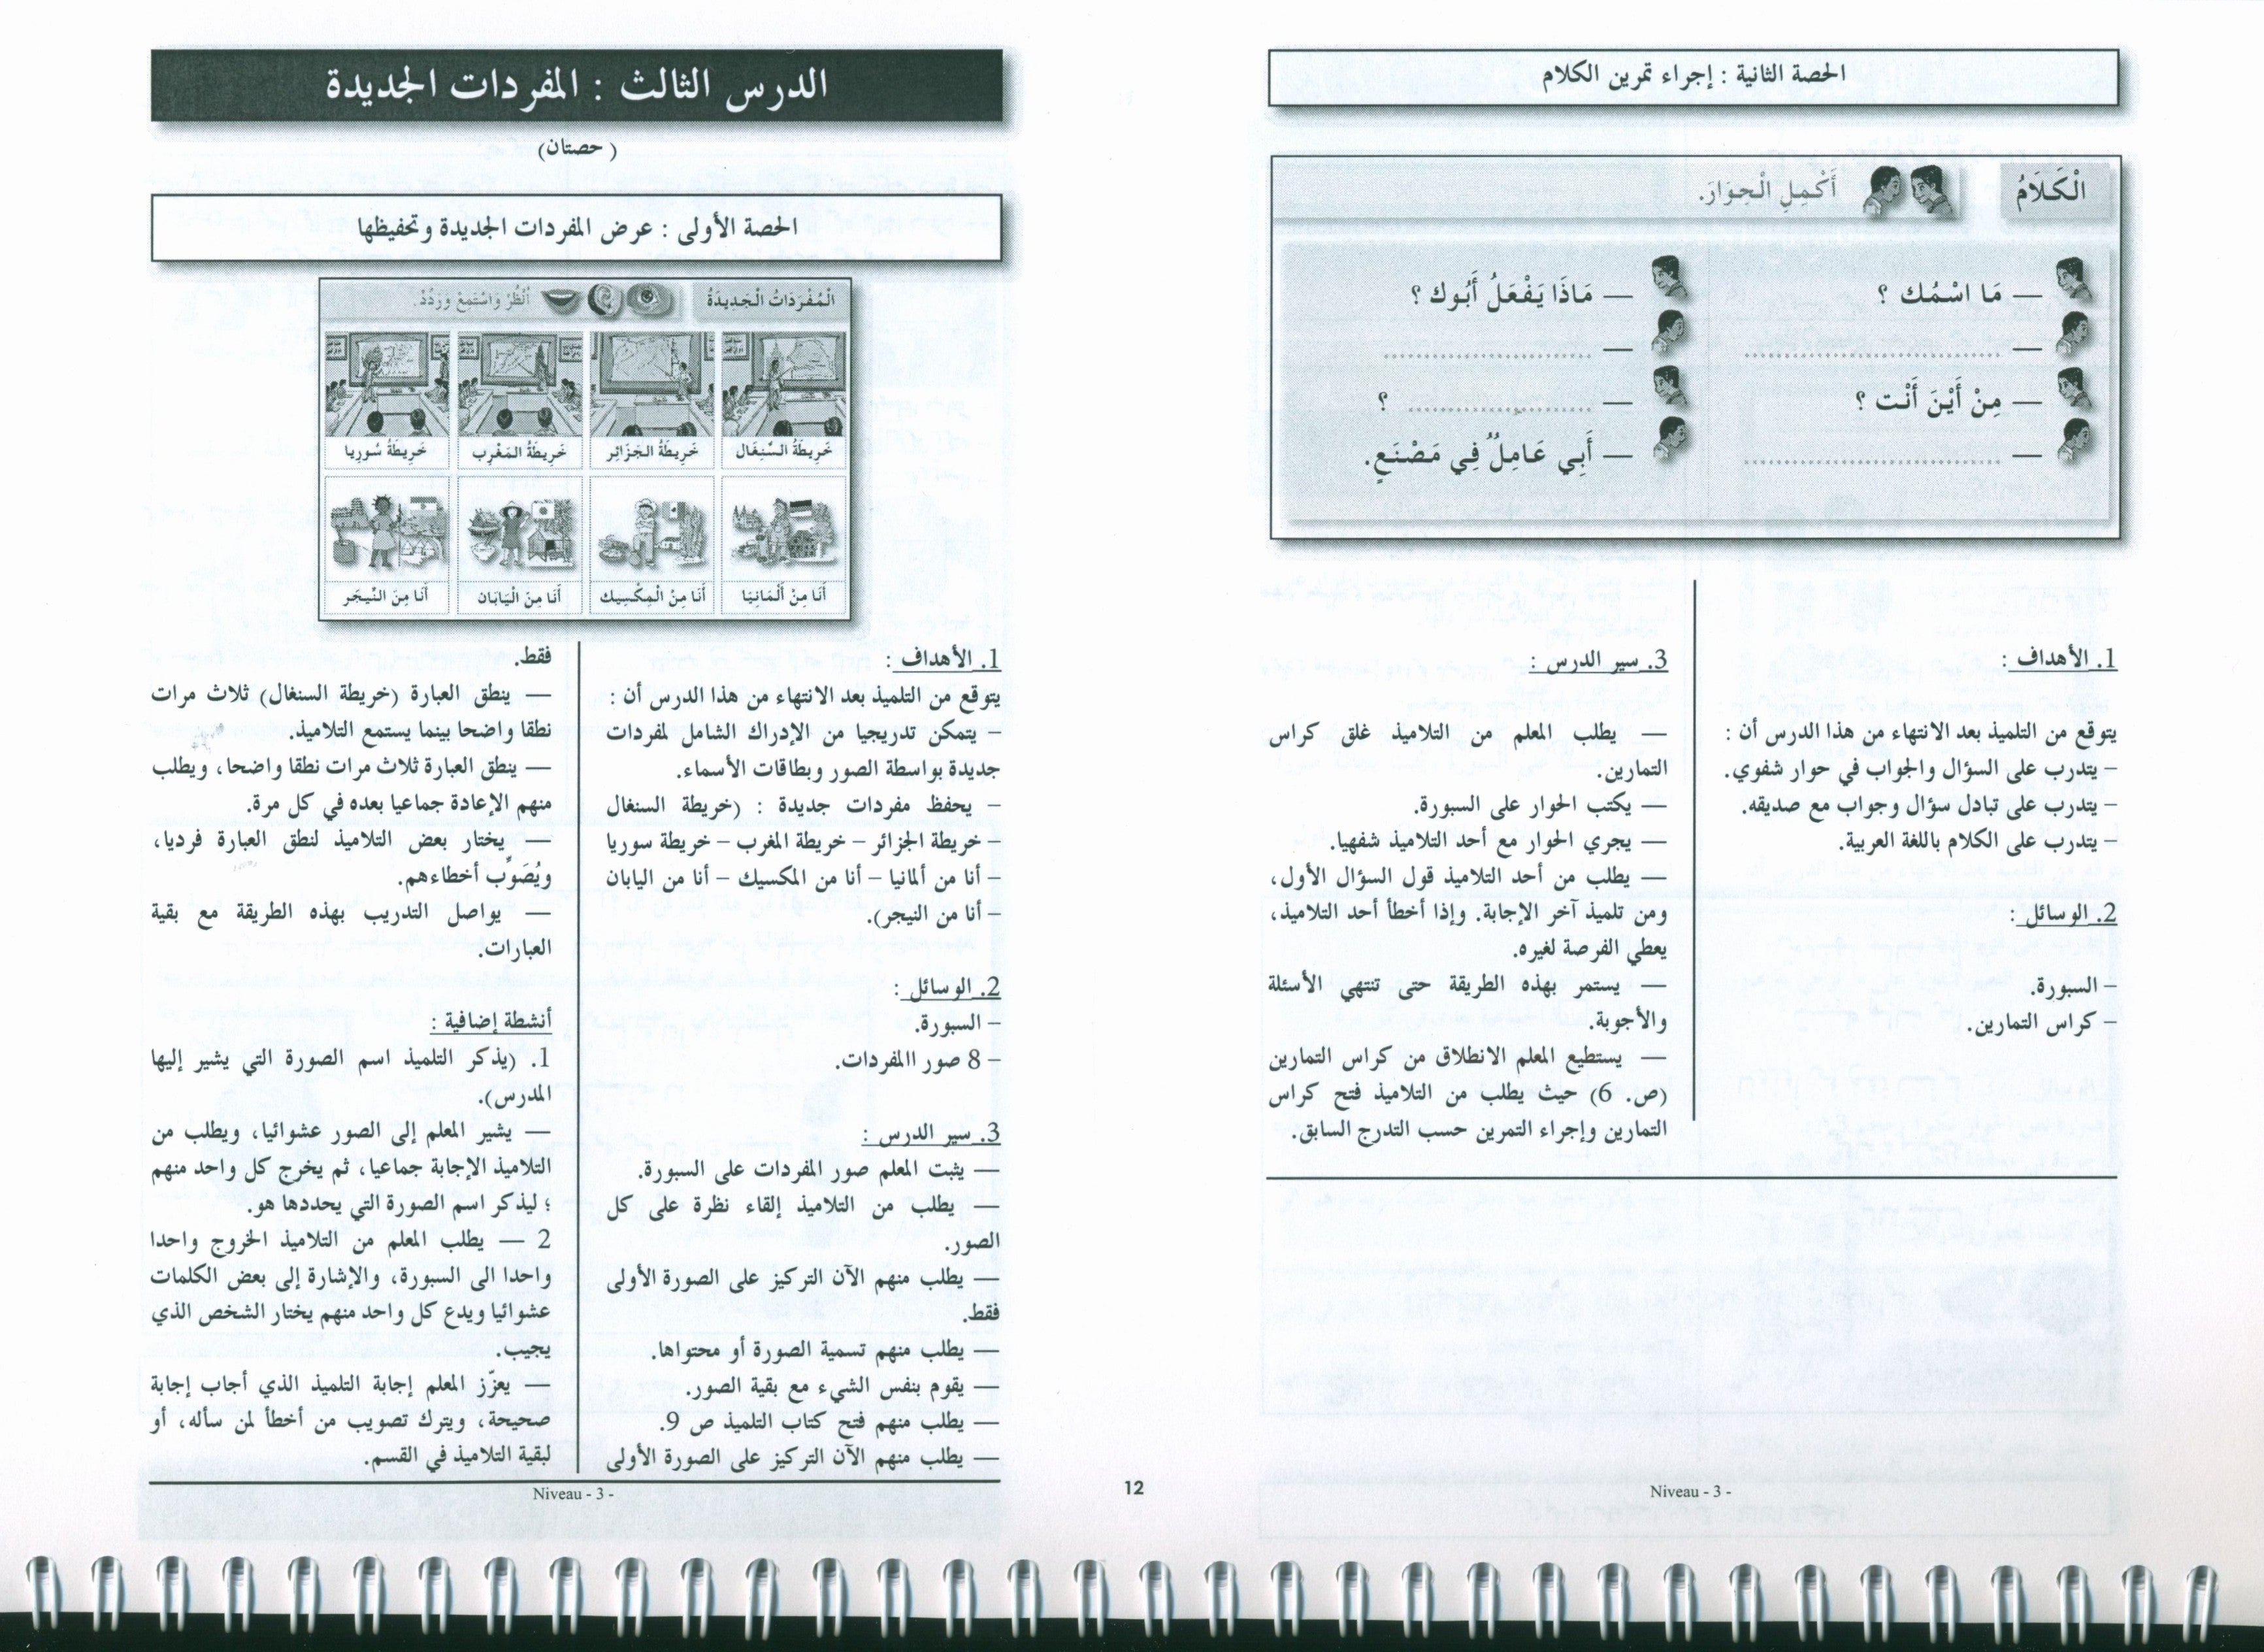 الحصة الثانية : إجراء تمرين الكلام
الْكَلَامُ
أَكْمِلِ الْحِوَارَ.
— مَا اسْمُك ؟
— ..............................
— مِنْ أَيْنَ أَنْت ؟
— ..............................
— مَاذَا يَفْعَلُ أَبُوك ؟
— ..............................
— .............................. ؟
— أَبِي عَامِلٌ فِي مَصْنَعٍ.
1. الأهداف :
يتوقع من التلميذ بعد الانتهاء من هذا الدرس أن :
– يتدرب على السؤال والجواب في حوار شفوي.
– يتدرب على تبادل سؤال وجواب مع صديقه.
– يتدرب على الكلام باللغة العربية.
2. الوسائل :
– السبورة.
– كراس التمارين.
3. سير الدرس :
— يطلب المعلم من التلاميذ غلق كراس
التمارين.
— يكتب الحوار على السبورة.
— يجري الحوار مع أحد التلاميذ شفهيا.
— يطلب من أحد التلاميذ قول السؤال الأول،
ومن تلميذ آخر الإجابة. وإذا أخطأ أحد التلاميذ،
يعطي الفرصة لغيره.
— يستمر بهذه الطريقة حتى تنتهي الأسئلة
والأجوبة.
— يستطيع المعلم الانطلاق من كراس التمارين
(ص. 6) حيث يطلب من التلاميذ فتح كراس
التمارين وإجراء التمرين حسب التدرج السابق.
Niveau - 3 -
12
الدرس الثالث : المفردات الجديدة
( حصتان)
الحصة الأولى : عرض المفردات الجديدة وتحفيظها
الْمُفْرَدَاتُ الْجَدِيدَةُ
اُنْظُرْ وَاسْتَمِعْ وَرَدِّدْ.
خَرِيطَةُ السِّنِغَال
خَرِيطَةُ الْجَزَائِر
خَرِيطَةُ الْمَغْرِب
خَرِيطَةُ سُورِيا
أَنَا مِنْ أَلْمَانِيَا
أَنَا مِنَ الْمِكْسِيك
أَنَا مِنَ الْيَابَان
أَنَا مِنَ النَّيجَر
1. الأهداف :
يتوقع من التلميذ بعد الانتهاء من هذا الدرس أن :
– يتمكن تدريجيا من الإدراك الشامل لمفردات
جديدة بواسطة الصور وبطاقات الأسماء.
– يحفظ مفردات جديدة : (خريطة السنغال
– خريطة الجزائر – خريطة المغرب – خريطة سوريا
– أنا من ألمانيا – أنا من المكسيك – أنا من اليابان
– أنا من النيجر).
2. الوسائل :
– السبورة.
– 8 صور االمفردات.
3. سير الدرس :
— يثبت المعلم صور المفردات على السبورة.
— يطلب من التلاميذ إلقاء نظرة على كل
الصور.
— يطلب منهم الآن التركيز على الصورة الأولى
فقط.
— يطلب منهم تسمية الصورة أو محتواها.
— يقوم بنفس الشيء مع بقية الصور.
— يطلب منهم فتح كتاب التلميذ ص 9.
— يطلب منهم الآن التركيز على الصورة الأولى
فقط.
— ينطق العبارة (خريطة السنغال) ثلاث مرات
نطقا واضحا بينما يستمع التلاميذ.
— ينطق العبارة ثلاث مرات نطقا واضحا، ويطلب
منهم الإعادة جماعيا بعده في كل مرة.
— يختار بعض التلاميذ لنطق العبارة فرديا،
ويُصَوِّب أخطاءهم.
— يواصل التدريب بهذه الطريقة مع بقية
العبارات.
أنشطة إضافية :
1. (يذكر التلميذ اسم الصورة التي يشير إليها
المدرس).
— يشير المعلم إلى الصور عشوائيا، ويطلب من
التلاميذ الإجابة جماعيا، ثم يخرج كل واحد منهم
؛ ليذكر اسم الصورة التي يحددها هو.
2 — يطلب المعلم من التلاميذ الخروج واحدا
واحدا الى السبورة، والإشارة إلى بعض الكلمات
عشوائيا ويدع كل واحد منهم يختار الشخص الذي
يجيب.
— يعزّز المعلم إجابة التلميذ الذي أجاب إجابة
صحيحة، ويترك تصويب من أخطأ لمن سأله، أو
لبقية التلاميذ في القسم.
Niveau - 3 -